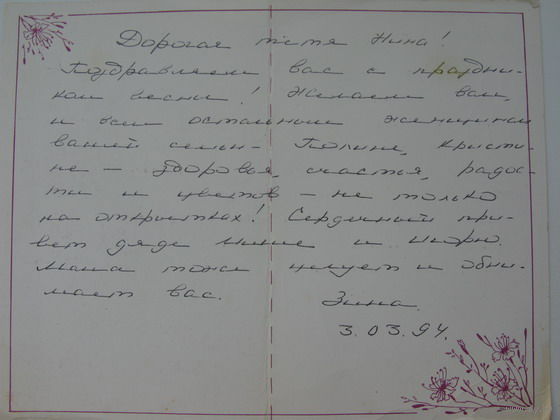 Дорогая тётя Нина!
Поздравляем вас с праздни-
ком весны! Желаем вам,
и всем остальным женщинам
вашей семьи - Полине, Кристи-
не - здоровья, счастья, радос-
ти и цветов - не только
на открытках! Сердечный при-
вет дяде Мише и
Мама тоже целует и обни-
мает вас.
Зина.
3.03.94.